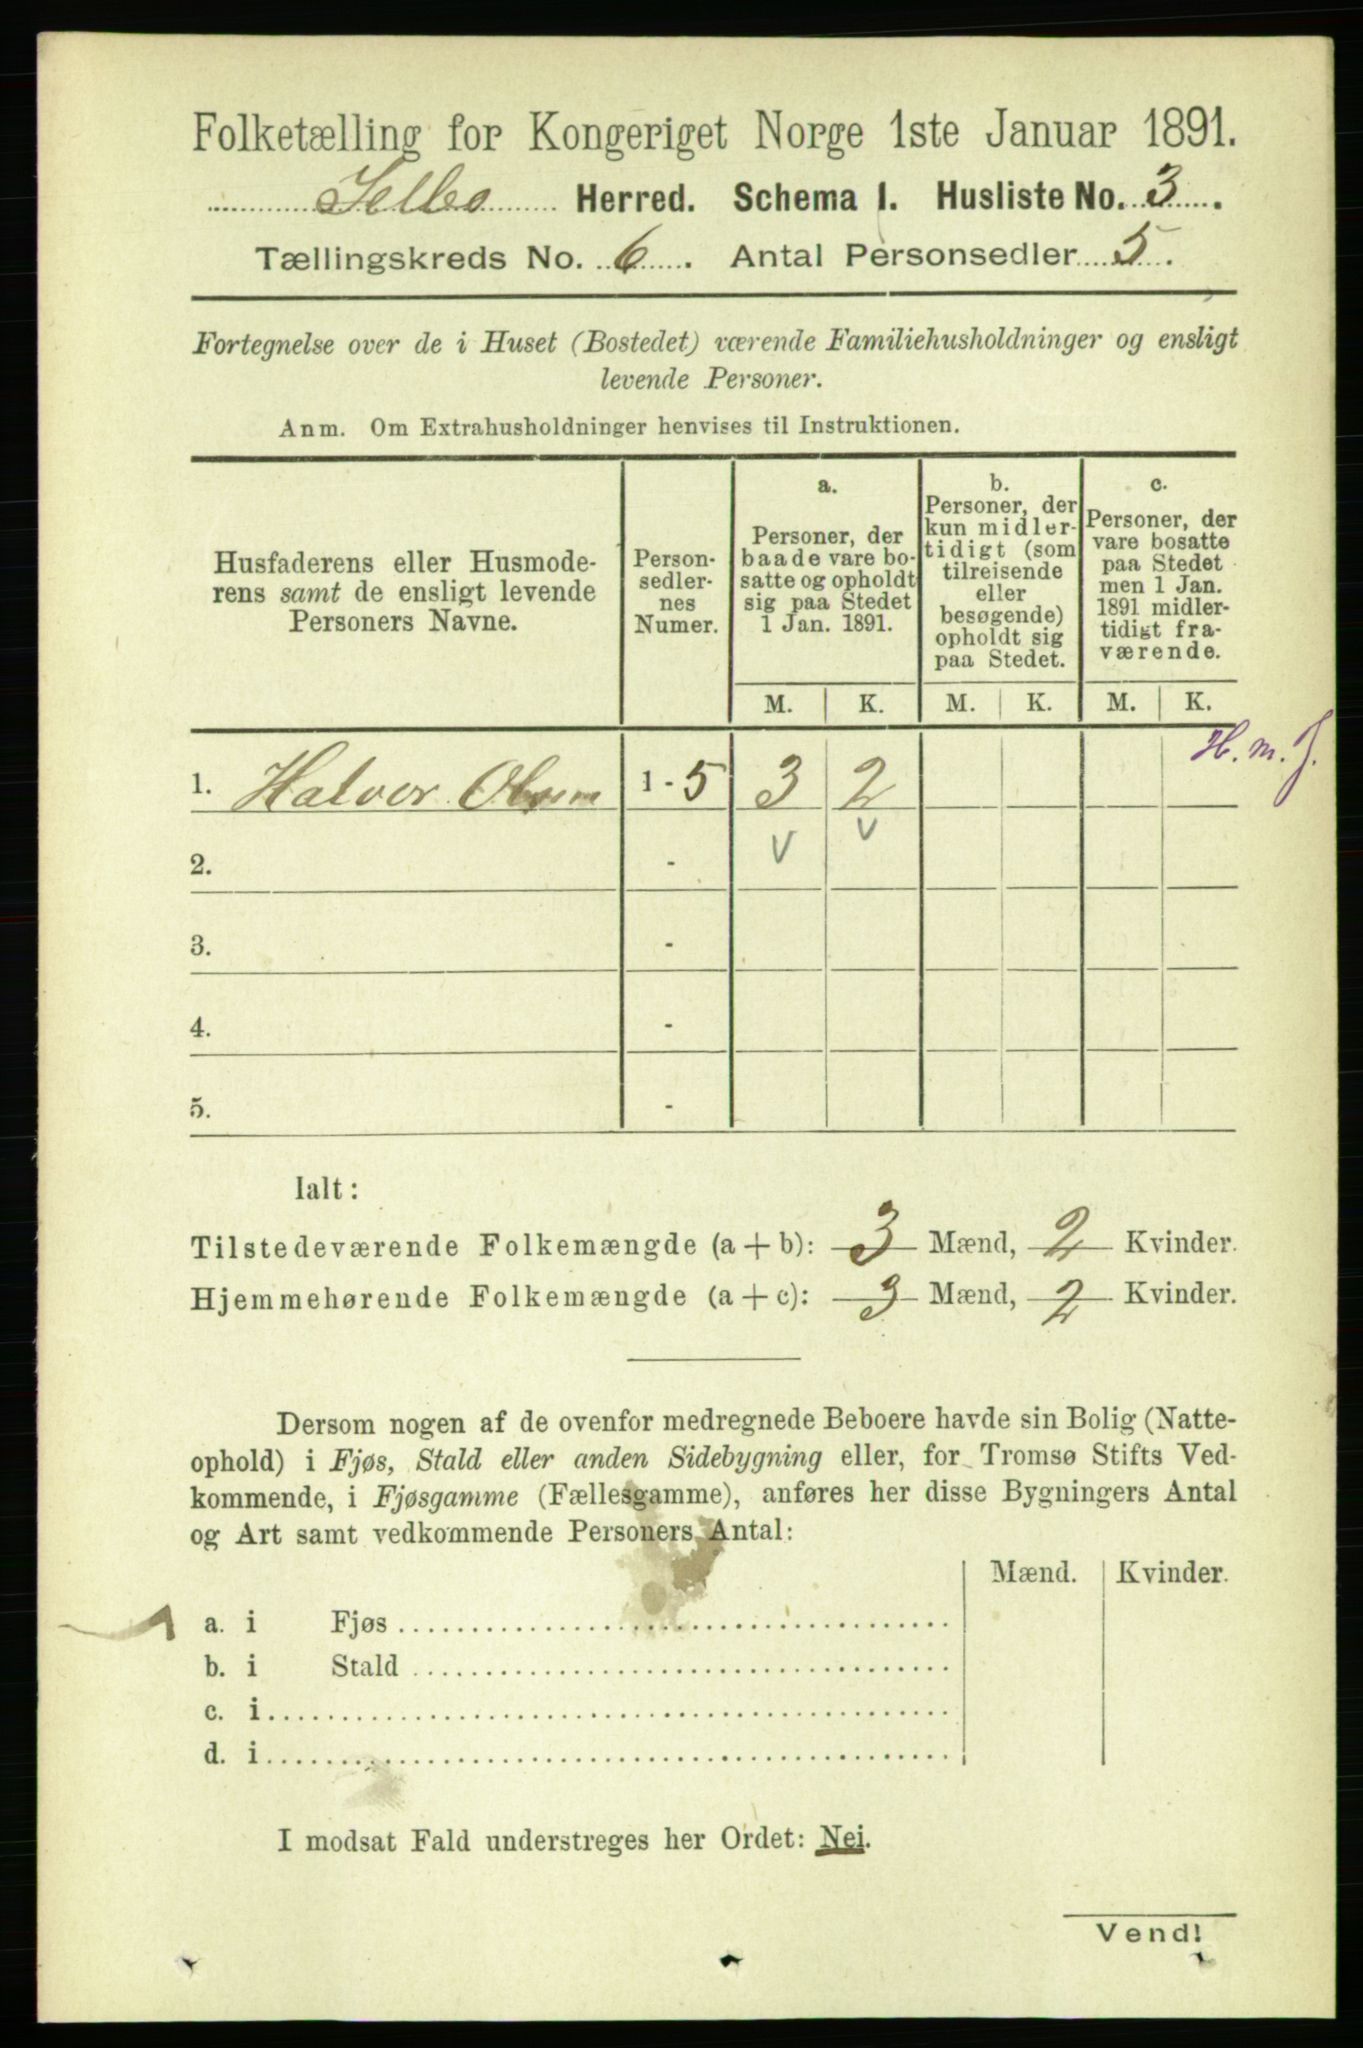 Folketælling for Kongeriget Norge 1ste Januar 1891.
Selbo Herred. Schema I. Husliste No. 3.
Tællingskreds No. 6. Antal Personsedler 5.
Fortegnelse over de i Huset (Bostedet) værende Familiehusholdninger og ensligt
levende Personer.
Anm. Om Extrahusholdninger henvises til Instruktionen.
Husfaderens eller Husmode-
rens samt de ensligt levende
Personers Navne.
Person-
sedler-
nes
Numer.
a.
Personer, der
baade vare bo-
satte og opholdt
sig paa Stedet
1 Jan. 1891.
b.
Personer, der
kun midler-
tidigt (som
tilreisende
eller
besøgende)
opholdt sig
paa Stedet.
c.
Personer, der
vare bosatte
paa Stedet
men 1 Jan.
1891 midler-
tidigt fra-
værende.
M. K. M. K. M. K.
H. m. J.
1. Halvor Olsen 1 - 5 3 2
2. - v v
3. -
4. -
5. -
Ialt:
Tilstedeværende Folkemængde (a + b): 3 Mænd, 2 Kvinder.
Hjemmehørende Folkemængde (a + c): 3 Mænd, 2 Kvinder.
Dersom nogen af de ovenfor medregnede Beboere havde sin Bolig (Natte-
ophold) i Fjøs, Stald eller anden Sidebygning eller, for Tromsø Stifts Ved-
kommende, i Fjøsgamme (Fællesgamme), anføres her disse Bygningers Antal
og Art samt vedkommende Personers Antal:
Mænd. Kvinder.
a. i Fjøs
b. i Stald
c. i
d. i
I modsat Fald understreges her Ordet: Nei.
Vend!